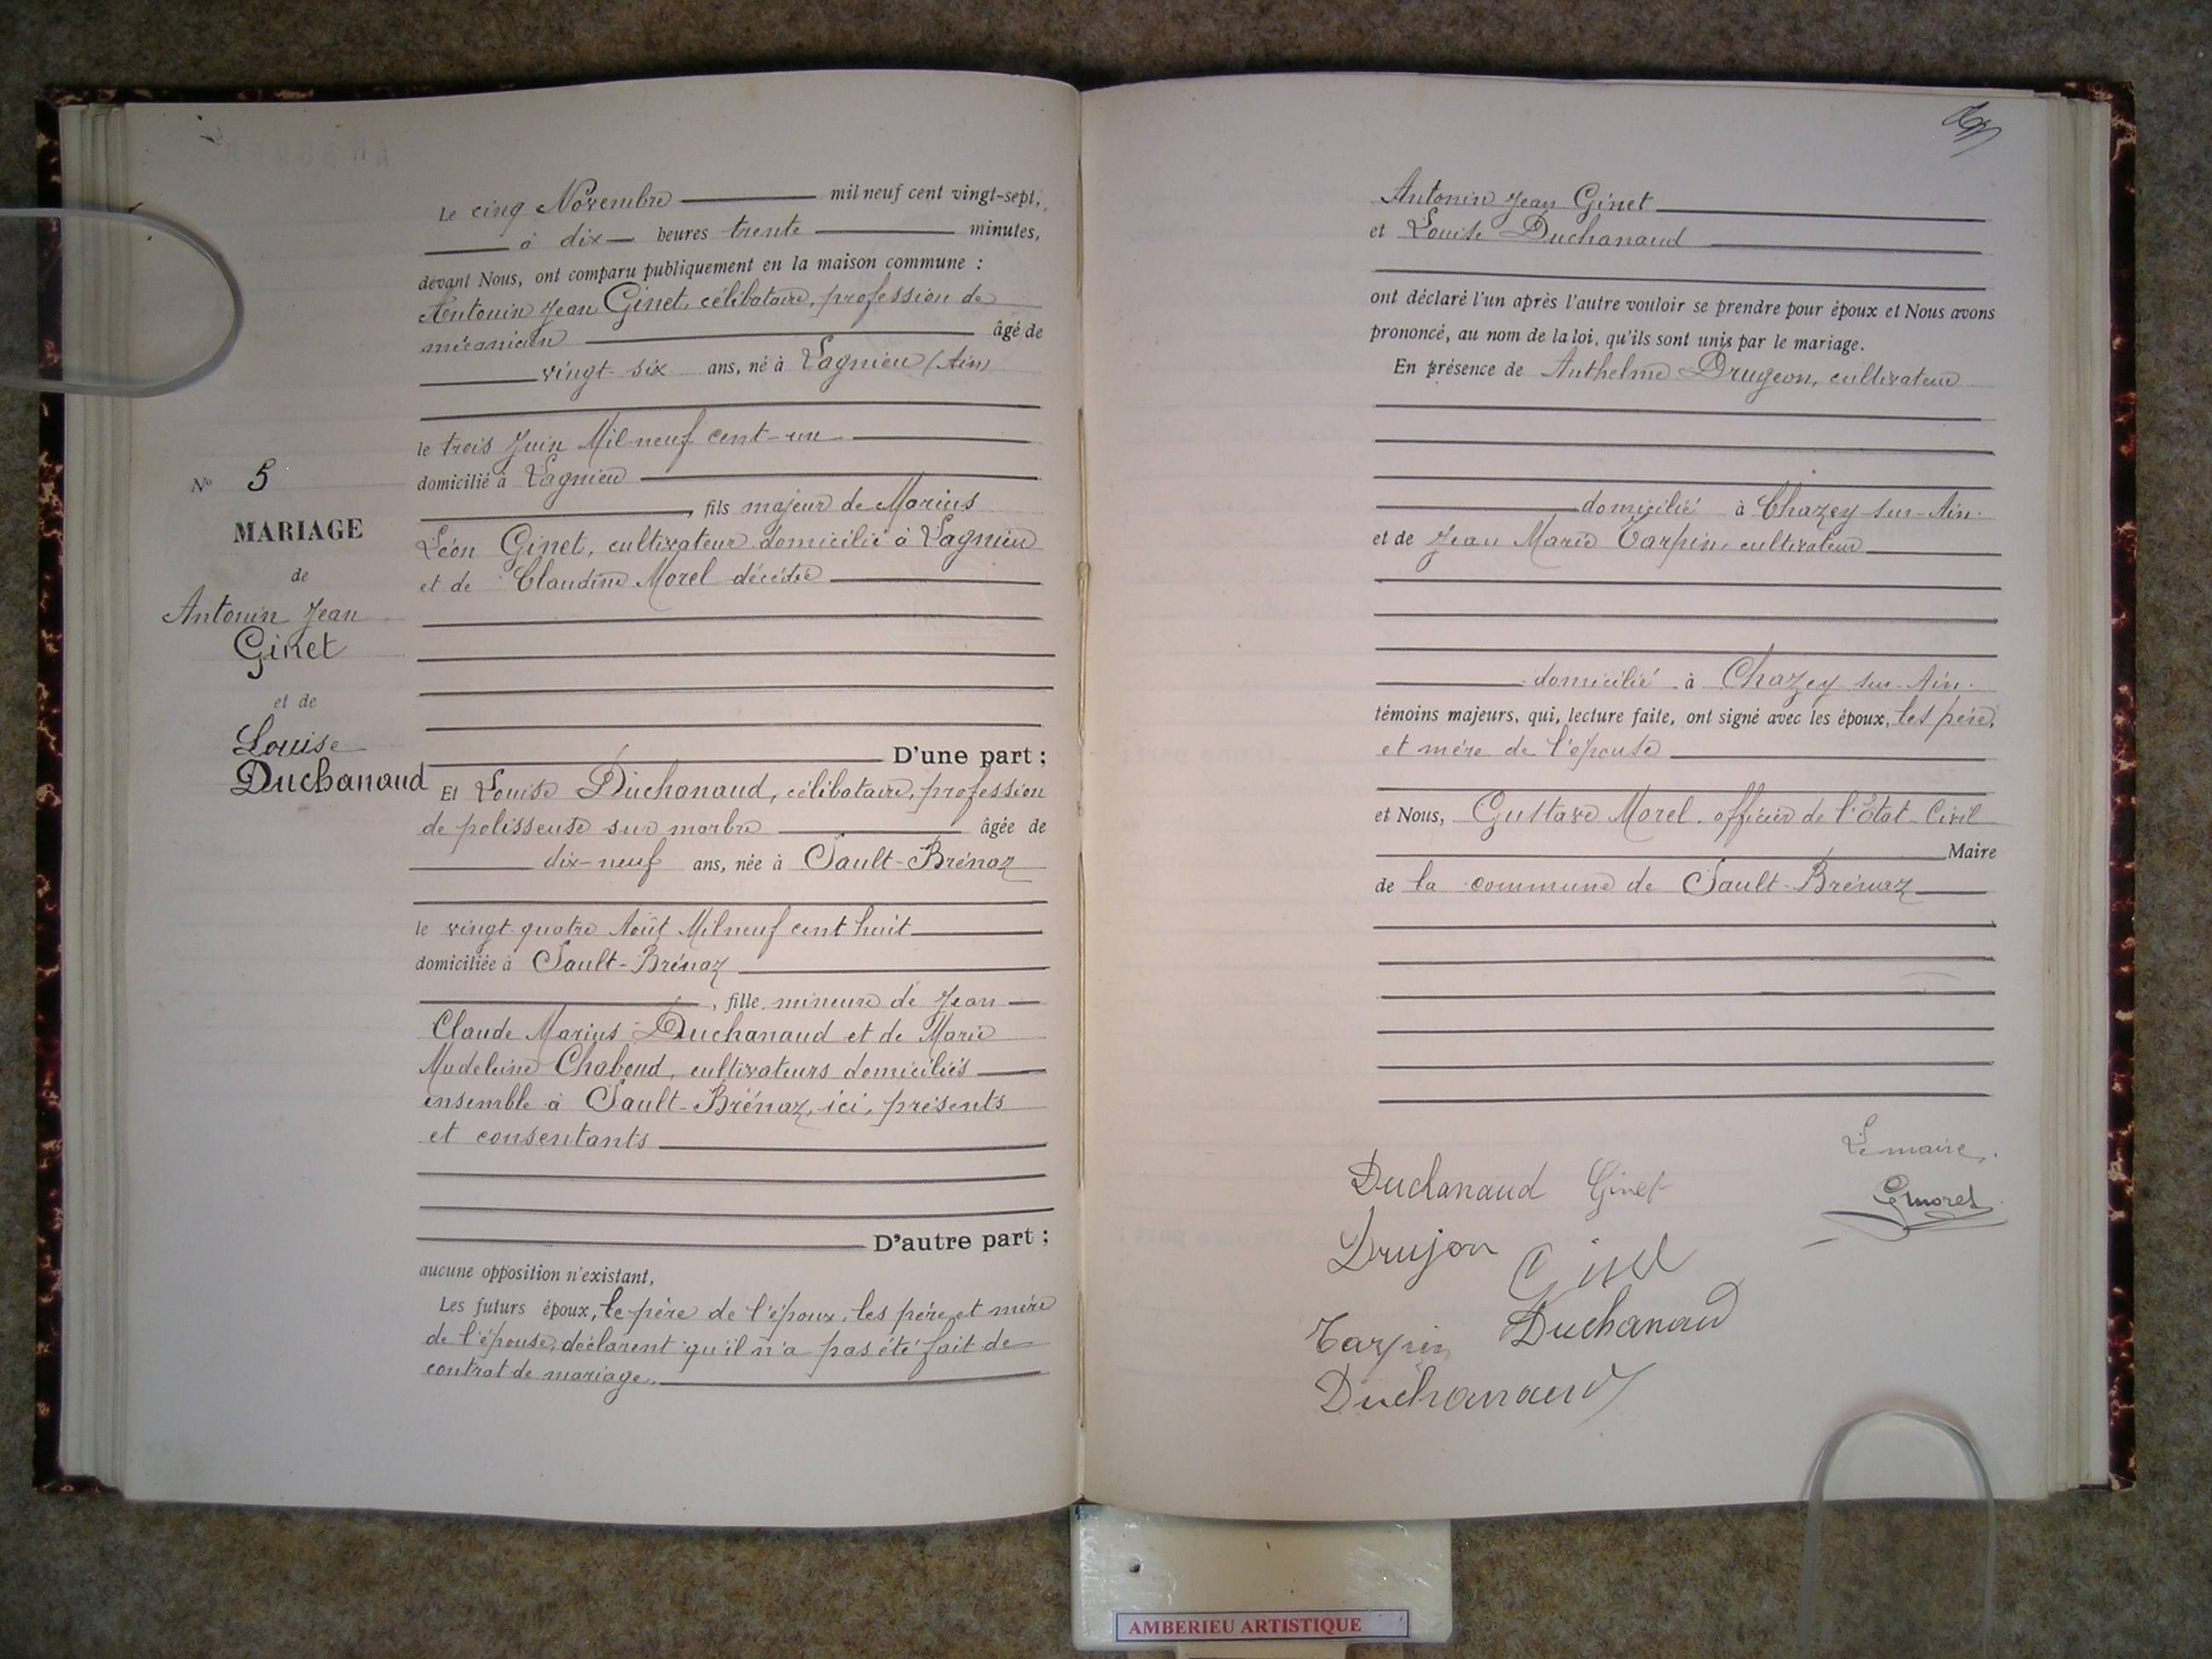 Le cinq Novembre mil neuf cent vingt-sept,
à dix heures trente minutes,
devant Nous, ont comparu publiquement en la maison commune :
Antonin Jean Ginet, célibataire, profession de
mécanicien âgé de
vingt-six ans, né à Lagnieu (Ain)
le trois Juin Mil neuf cent-un
domicilié à Lagnieu
, fils majeur de Marius
Léon Ginet, cultivateur domicilié à Lagnieu
et de Claudine Morel décédée
N° 5
MARIAGE
de
Antonin Jean
Ginet
et de
Louise
Duchanaud
D'une part ;
Et Louise Duchanaud, célibataire, profession
de polisseuse sur marbre âgée de
dix-neuf ans, née à Sault-Brénaz
le vingt-quatre Août Mil neuf cent huit
domiciliée à Sault-Brénaz
, fille mineure de Jean
Claude Marius Duchanaud et de Marie
Madeleine Chaboud, cultivateurs domiciliés
ensemble à Sault-Brénaz, ici, présents
et consentants
D'autre part ;
aucune opposition n'existant,
Les futurs époux, le père de l'époux, les père et mère
de l'épouse, déclarent qu'il n'a pas été fait de
contrat de mariage.
Antonin Jean Ginet
et Louise Duchanaud
ont déclaré l'un après l'autre vouloir se prendre pour époux et Nous avons
prononcé, au nom de la loi, qu'ils sont unis par le mariage.
En présence de Anthelme Drugeon, cultivateur
domicilié à Chazey-sur-Ain.
et de Jean Marie Tarpin, cultivateur
domicilié à Chazey-sur-Ain.
témoins majeurs, qui, lecture faite, ont signé avec les époux, les père,
et mère de l'épouse
et Nous, Gustave Morel, officier de l'Etat-Civil
Maire
de la commune de Sault-Brénaz
Le maire,
Duchanaud Ginet
GMorel
Drujon Ginet
Tarpin Duchanaud
Duchanaud
AMBERIEU ARTISTIQUE